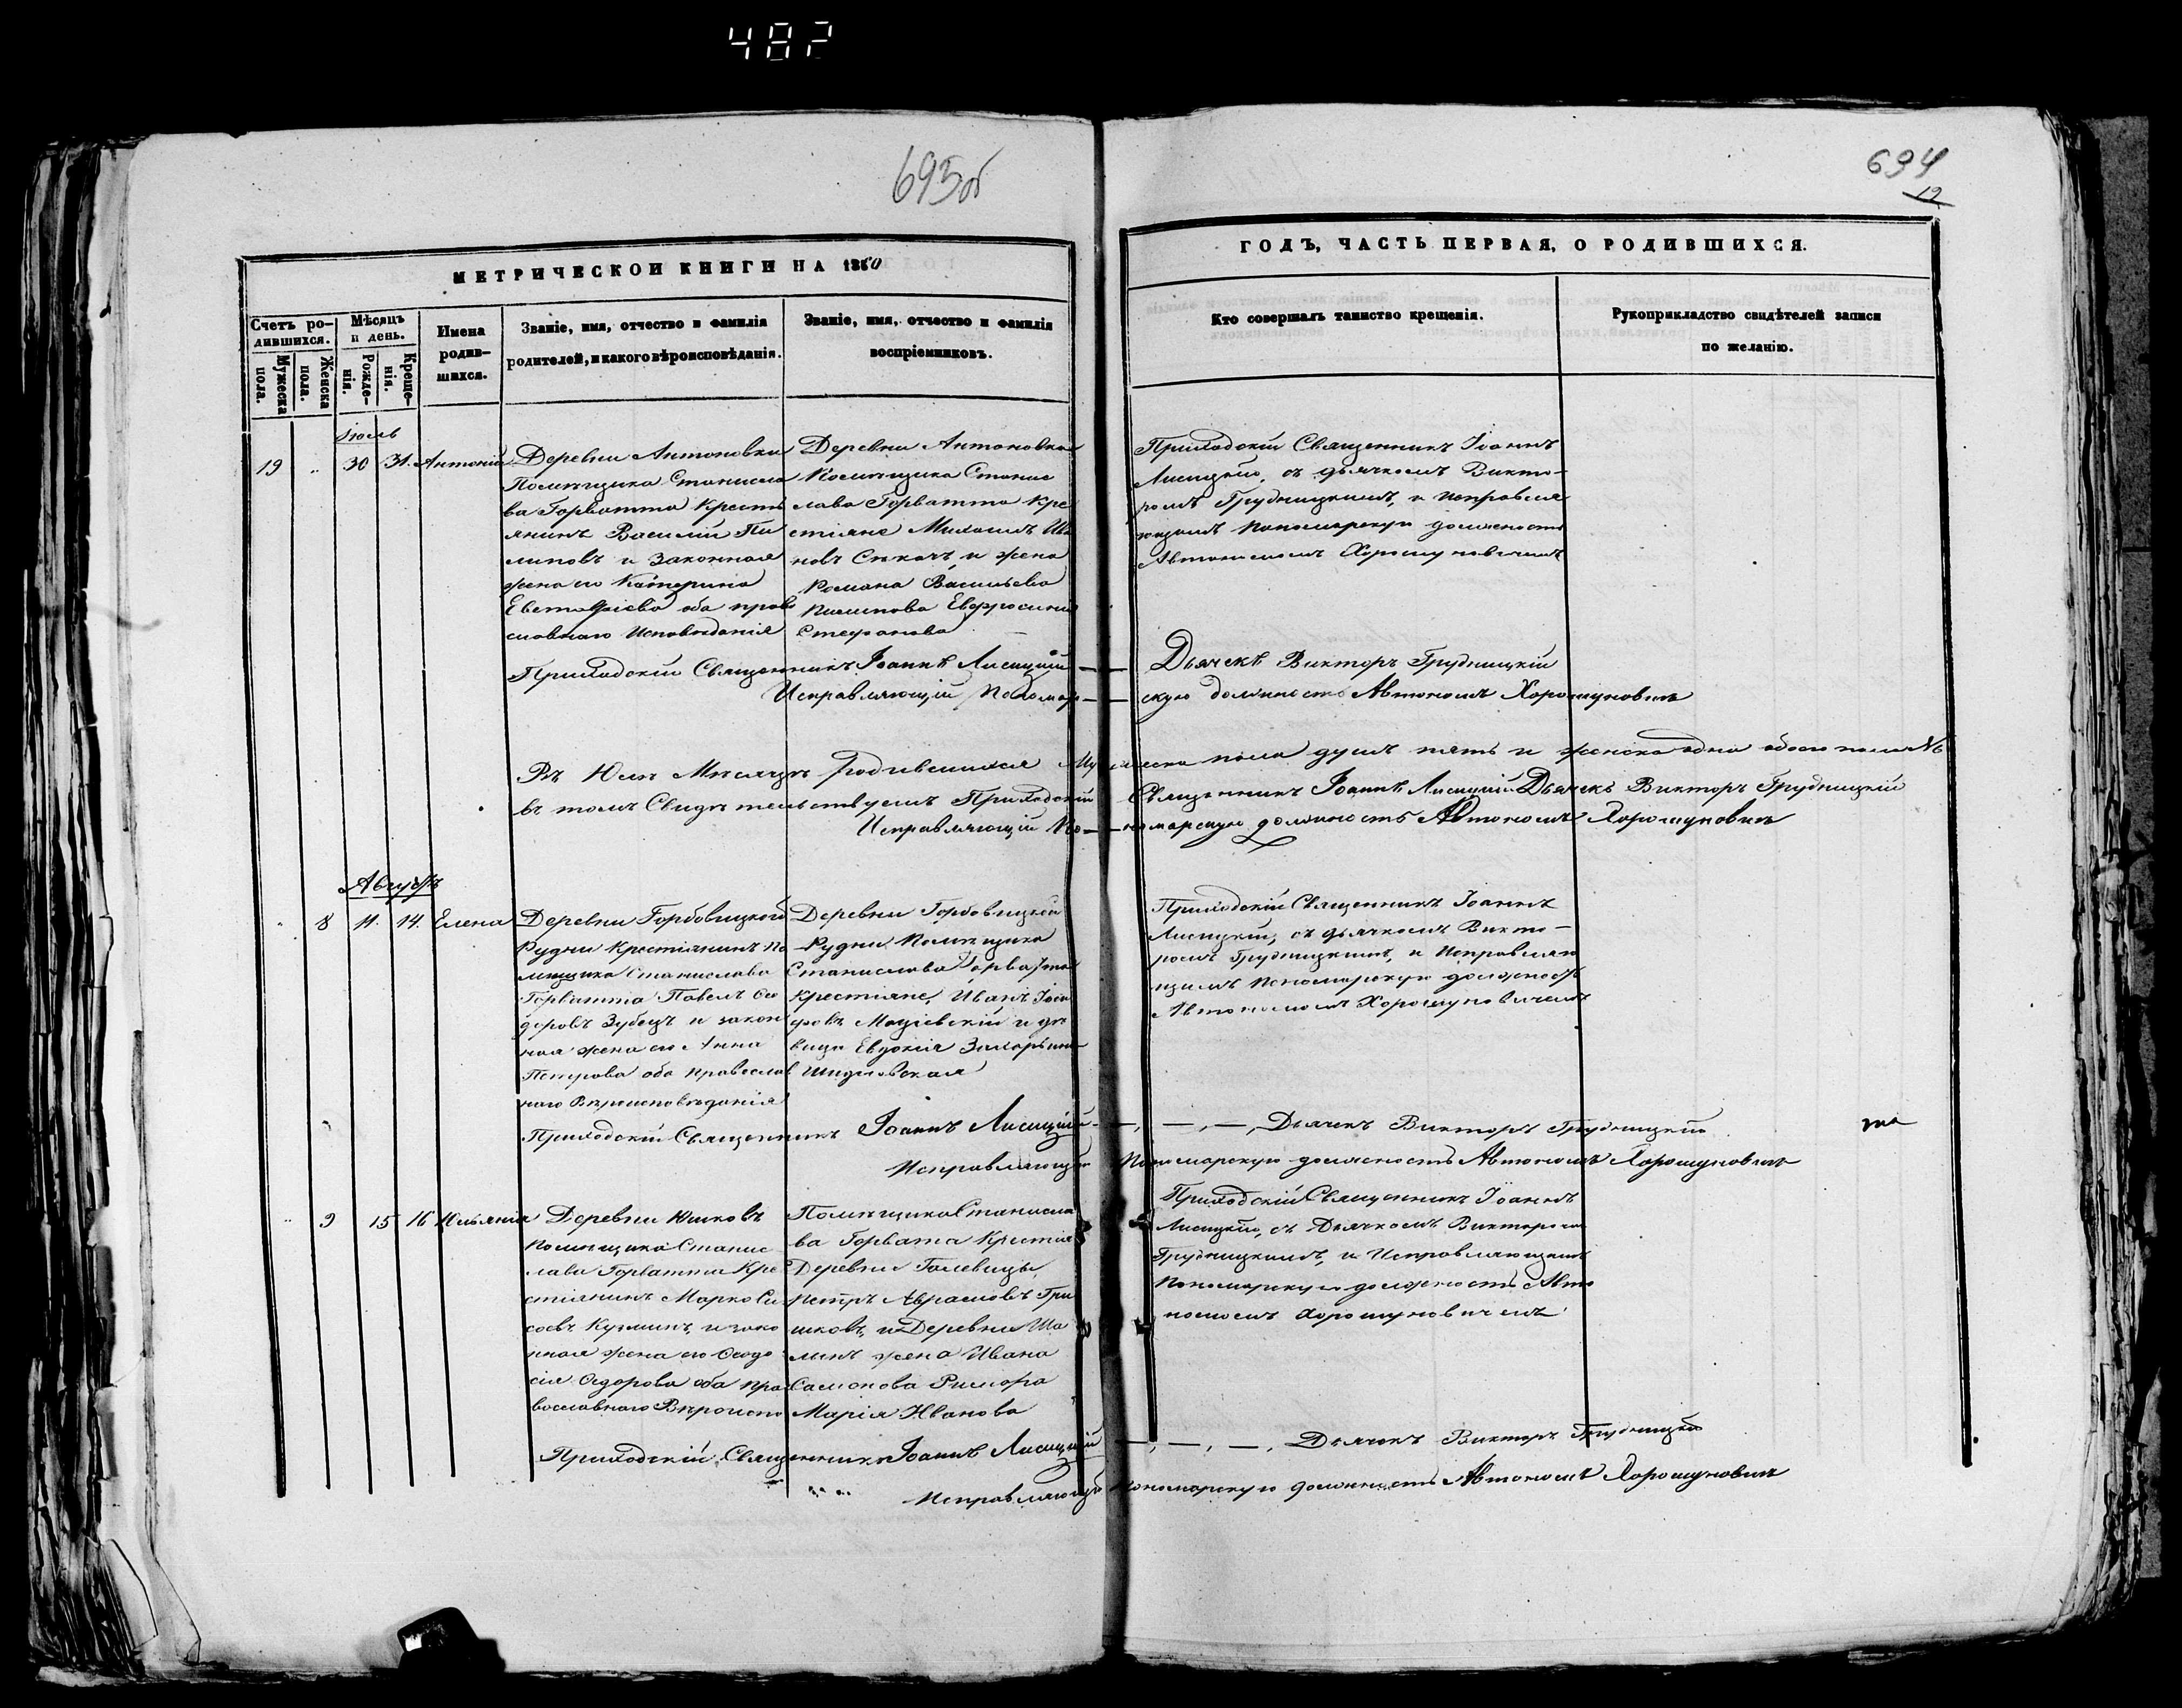 482
693об
694
12
МЕТРИЧЕСКОЙ КНИГИ НА 1860
ГОДЪ, ЧАСТЬ ПЕРВАЯ, О РОДИВШИХСЯ.
Счетъ ро-
дившихся.
Мужеска
пола.
Женска
пола.
Мѣсяцъ
и день.
Рожде-
нія.
Креще-
нія.
Имена
родив-
шихся.
Званіе, имя, отчество и фамилія
родителей, и какого вѣроисповѣданія.
Званіе, имя, отчество и фамилія
воспріемниковъ.
Кто совершалъ таинство крещенія.
Рукоприкладство свидѣтелей записи
по желанію.
Іюль
19 „ 30 31. Антоній
Деревни Антоновки
Помѣщика Станисла
ва Горватта Кресть
янинъ Василій Пи
липовъ и законная
жена его Катерина
Евстафіева оба право
славнаго Исповѣданія
Деревни Антоновки
Помѣщика Станис
лава Горватта Кре
стіяне Михаилъ Ива
новъ и жена
Романа Васильева
Пилипова Евфросинія
Стефанова
Приходскій Священникъ Іоаннъ
Лисицкій, съ дьячкомъ Викто-
ромъ Грудницкимъ, и Исправля
ющимъ Пономарскую должность
Автономомъ Хорошуновичемъ
Приходскій Священникъ Іоаннъ Лисицкій — Дьячекъ Викторъ Грудницкій
Исправляющій Пономар — скую должность Автономъ Хорошуновичъ
Въ Юлѣ Мѣсяцѣ родившихся Мужеска пола душъ пять и женска одна обоего пола №6
въ томъ Свидѣтельствуемъ Приходскій Священникъ Іоаннъ Лисицкій Дьячекъ Викторъ Грудницкій
Исправляющій По — номарскую должность Автономъ Хорошуновичъ
Августъ
„ 8 11. 14. Елена
Деревни Горбовицкой
Рудни Крестіянинъ По
мѣщика Станислава
Горватта Павелъ Ѳе
доровъ Зубецъ и закон
ная жена его Анна
Петрова оба православ
наго Вѣроисповѣданія
Деревни Горбовицкой
Рудни Помѣщика
Станислава Горватта
Крестіяне, Иванъ Іоси
фовъ Маціевскій и дѣ
вица Евдокія Захарьина
Шидловская
Приходскій Священникъ Іоаннъ
Лисицкій, съ дьячкомъ Викто-
ромъ Грудницкимъ, и Исправляю
щимъ Пономарскую должность
Автономомъ Хорошуновичемъ
Приходскій Священникъ Іоаннъ Лисицкій —, —, —, Дьячекъ Викторъ Грудницкій
Исправляющій Пономарскую должность Автономъ Хорошуновичъ
„ 9 15 16 Юльянія
Деревни Юшковъ
Помѣщика Станис
лава Горватта Кре
стіянинъ Марко Си
соевъ Кузминъ, и зако
нная жена его Ѳеодо
сія Ѳедорова оба пра
вославнаго Вѣроиспо
Помѣщика Станисла
ва Горвата Крестія
Деревни Голевицы,
Петръ Аврамовъ Гри
шковъ, и Деревни Ша
линъ жена Ивана
Самонова
Марія Иванова
Приходскій Священникъ Іоаннъ
Лисицкій, съ Дьячкомъ Викторомъ
Грудницкимъ, и Исправляющимъ
Пономарскую должность Авто
номомъ Хорошуновичемъ
Приходскій Священникъ Іоаннъ Лисицкій —, —, —, Дьячекъ Викторъ Грудницкій
Исправляющій Пономарскую должность Автономъ Хорошуновичъ